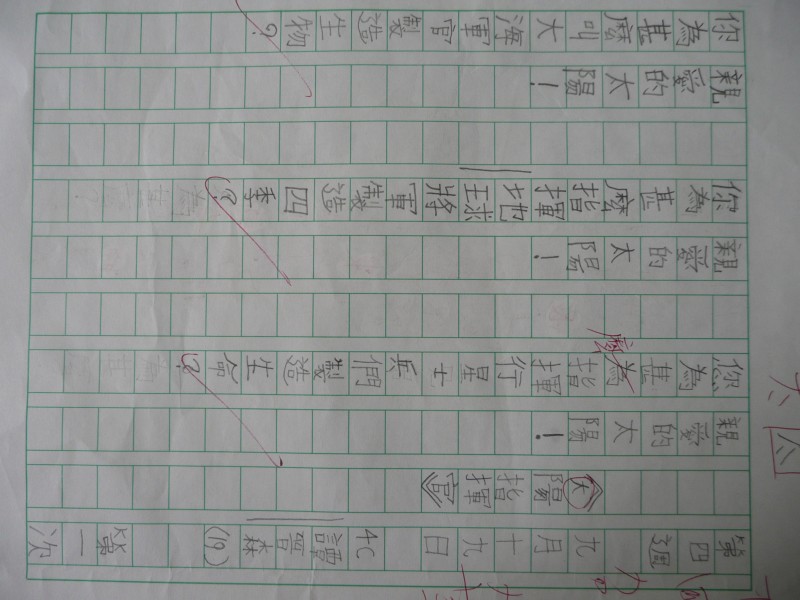 第四週 九月十九日 4C 譚晉森 (19) 第一次
《大陽指揮官》
親愛的太陽！
您為甚為指揮行星士兵們製造生命？
麼
親愛的太陽！
你為甚麼指揮地球將軍製造四季？
親愛的太陽！
你為甚麼叫大海軍官製造生物？